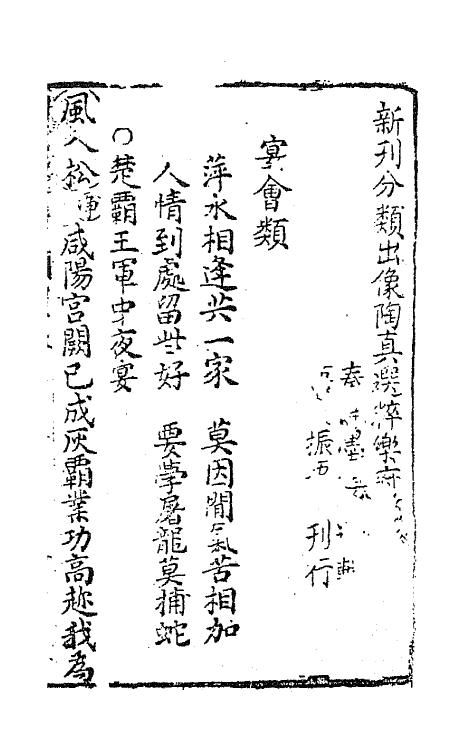 新刊分類出像陶真選粹樂府
秦
振 刊行
宴會類
萍水相逢共一家 莫因閒氣苦相加
人情到處留些好 要學屠龍莫捕蛇
○楚霸王軍中夜宴
風入松 咸陽宮闕已成灰霸業功高越我為